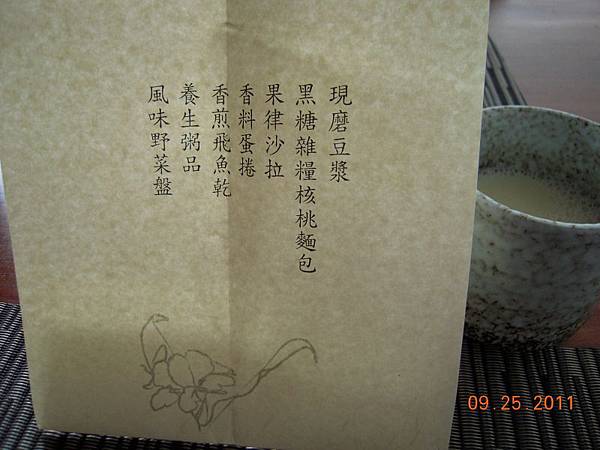 現磨豆漿
黑糖雜糧核桃麵包
果律沙拉
香料蛋捲
香煎飛魚乾
養生粥品
風味野菜盤
09.25.2011